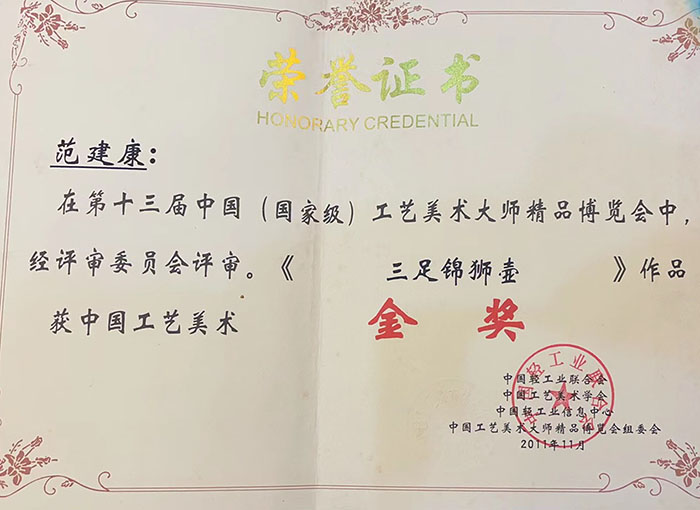 荣誉证书
HONORARY CREDENTIAL
范建康：
在第十三届中国（国家级）工艺美术大师精品博览会中，
经评审委员会评审。《 三足锦狮壶 》作品
获中国工艺美术 金奖
中国轻工业联合会
中国工艺美术学会
中国轻工业信息中心
中国工艺美术大师精品博览会组委会
2011年11月